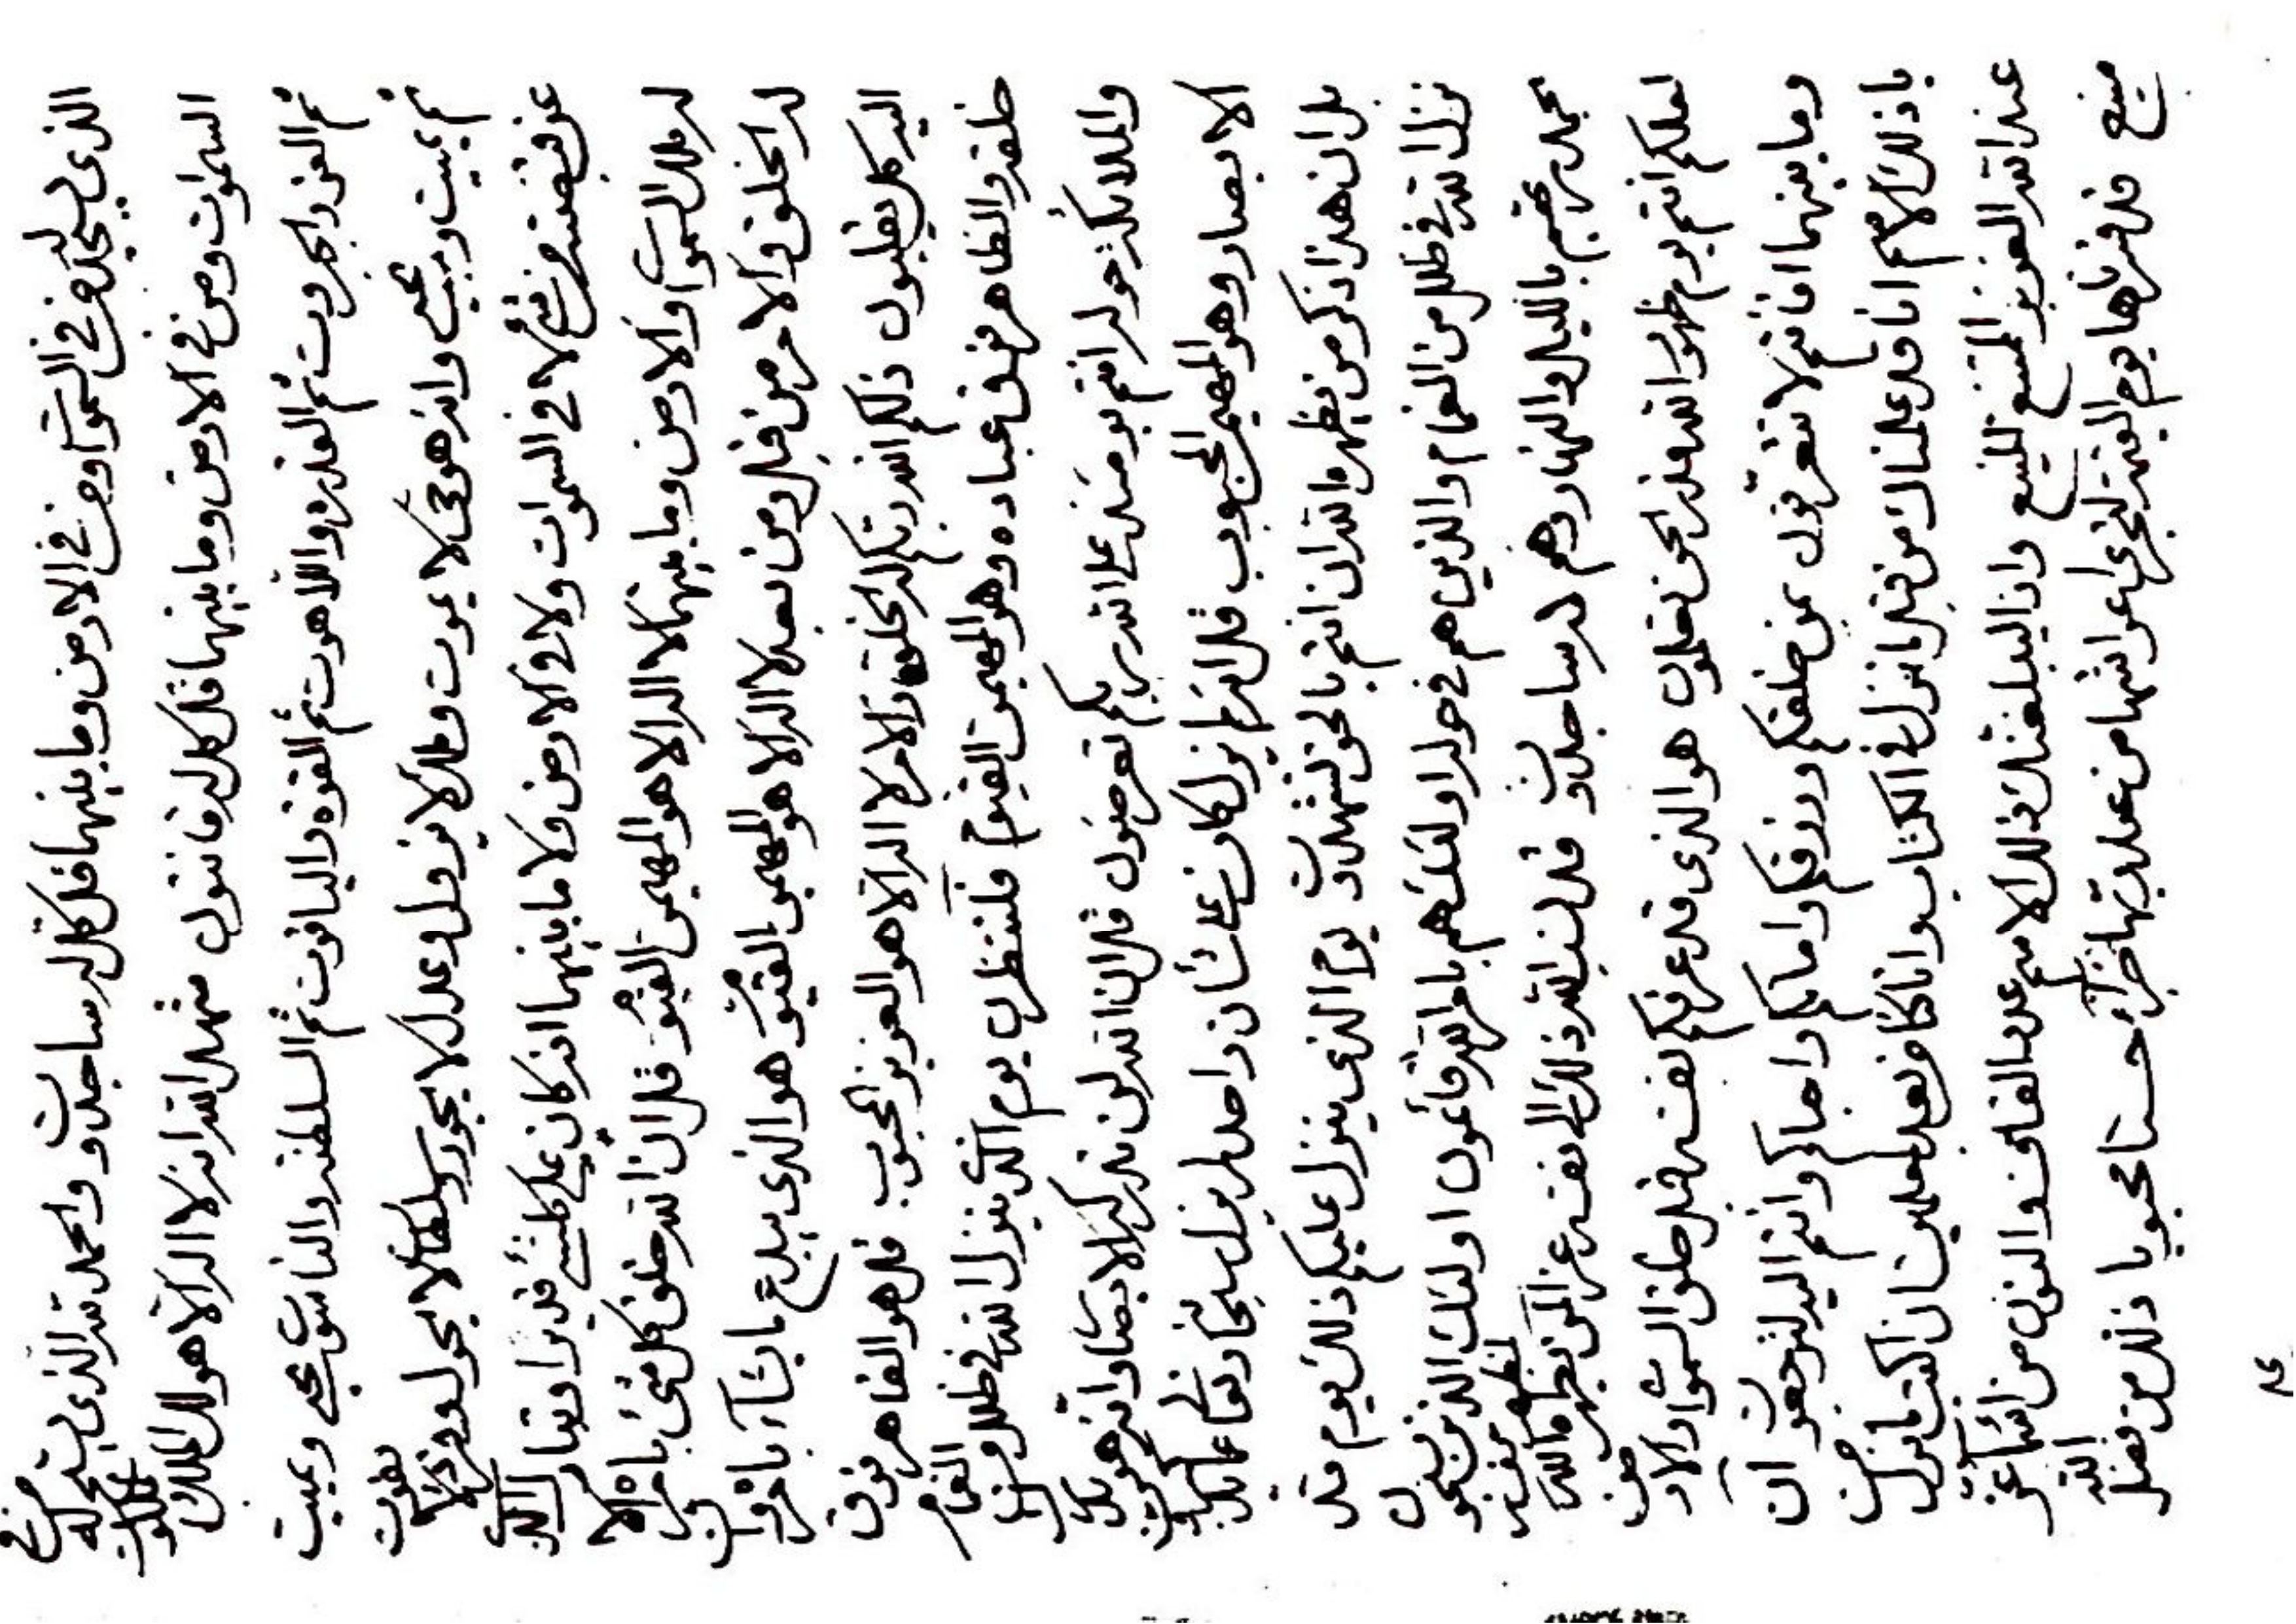 الذی یسجد له من فی السموات و من فی الارض و ما بینهما قل کل له ساجدون و الحمد لله الذی یسبح له من فی
السموات و من فی الارض و ما بینهما قل کل له قانتون شهد الله انه لا اله الا هو له الملک و الملکوت
ثم العز و الجبروت ثم القدرة و اللاهوت ثم القوة و الیاقوت ثم السلطنة و الناسوت یحیی و یمیت
ثم یمیت و یحیی و انه هو حی لا یموت و ملک لا یزول و عدل لا یجور و سلطان لا یحول و فرد لا یفوت
عن قبضته من شئ لا فی السموات و لا فی الارض و لا ما بینهما انه کان علی کلشئ قدیرا و تبارک الذی
له ملک السموات و الارض و ما بینهما لا اله الا هو المهیمن القیوم قل ان الله خلق کل شئ بامره الا
له الخلق و الامر من قبل و من بعد لا اله الا هو المهیمن القیوم هو الذی یبدع ما یشاء بامره و ان
الیه کل یقلبون ذلکم الله ربکم له الخلق و الامر لا اله الا هو العزیز المحبوب قل هو القاهر فوق
خلقه و الظاهر فوق عباده و هو المهیمن القیوم فلتنظرن یوم الذی ینزل الله فی ظلل من الغمام
و الملائکة حوله انتم یومئذ علی الله ربکم تعرضون قل ان الله لن تدرکه الابصار و انه هو یدرک
الابصار و هو المهیمن المحبوب قل انه لم یزل کان علی شأن واحد لم یزل سبحانه و تعالی عما
بل ان هذا ذکر من یظهره الله ان انتم بالحق لتشهدون یوم الذی ینزل علیکم ذلک یوم قد
نزل الله فی ظلل من الغمام و الذین هم فی حوله اولئک هم بامر الله قائمون اولئک الذین یسبحون
بحمد ربهم باللیل و النهار و هم له ساجدون قل نسب الله ذلک الی نفسه عز لمن یظهره الله
لعلکم انتم یوم ظهور الله عند الحق تعملون هو الذی قد عرفکم نفسه قبل خلق السموات و الارض
و ما بینهما افانتم لا تتقربون بمن خلقکم و رزقکم و اماتکم و احیاکم و انتم الیه لترجعون ان
یا ذلک الاسم انا قد علمناک من قبل ما نزل فی الکتاب و انا کنا فوق کل معلمین ان اکتب ما نزل من
عند الله العزیز الممتنع المنیع و اذا بلغتک ذلک الاسم عدد القاف و النون من اسماء عز
منیع قد قدرناها یوم القیمة لتجزی اعراشها من عند ربها جزاء حسنا محبوبا ذلک من فضل الله
۸۴